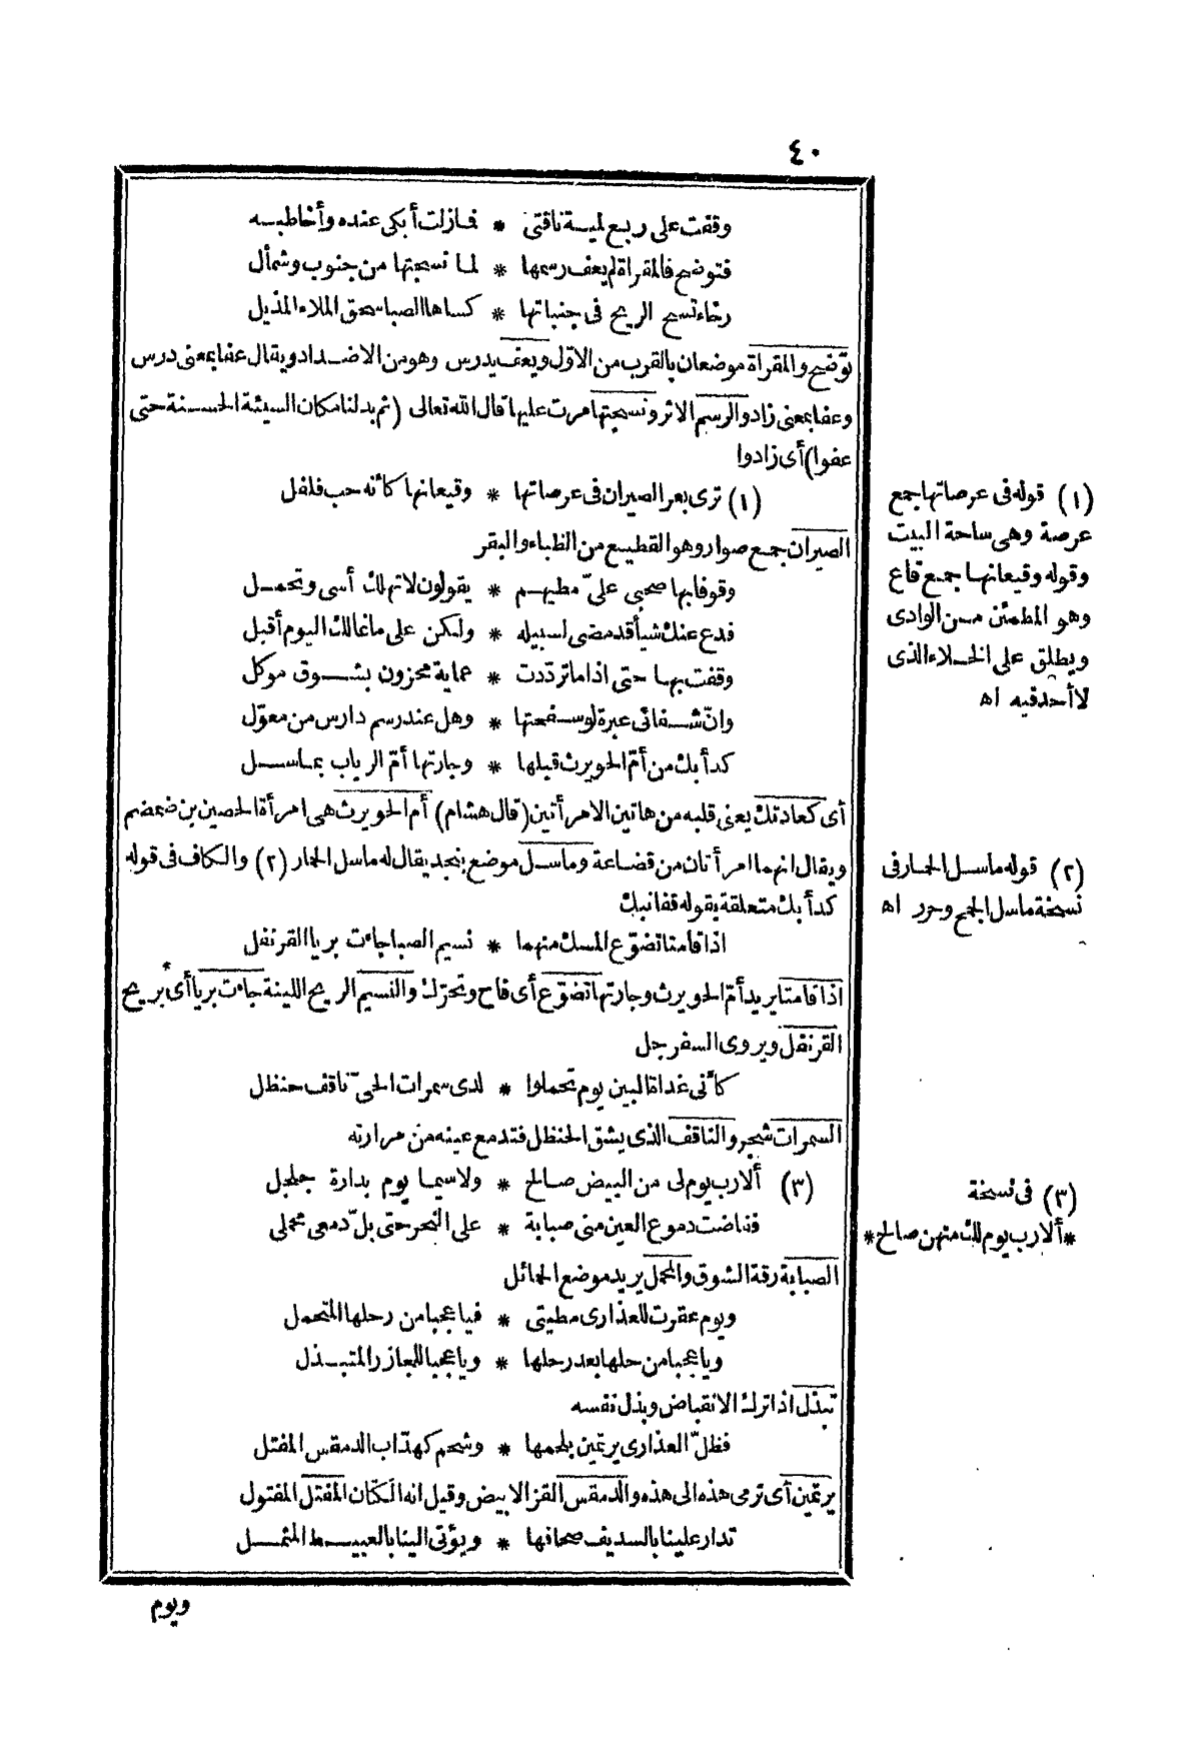 ٤٠
وقفت على ربع لمية ناقتي * فمازلت أبكى عنده وأخاطبه
فتوضح فالمقراة لم يعف رسمها * لما نسجتها من جنوب وشمأل
رخاء تسح الريح فى جنباتها * كساها الصبا سحق الملاء المذيل
توضح والمقراة موضعان بالقرب من الاوّل ويعف يدرس وهو من الاضداد ويقال عفا بمعنى درس
وعفا بمعنى زاد والرسم الاثر ونسجتها مرت عليها قال الله تعالى (ثم بدلنا مكان السيئة الحسنة حتى
عفوا) أى زادوا
(١) ترى بعر الصيران فى عرصاتها * وقيعانها كأنه حب فلفل
الصيران جمع صوار وهو القطيع من الظباء والبقر
وقوفا بها صحبي علىّ مطيهم * يقولون لا تهلك أسى وتحمل
فدع عنك شيأ قد مضى لسبيله * ولكن على ما غالك اليوم أقبل
وقفت بها حتى اذا ما تردّدت * عماية محزون بشوق موكل
وانّ شفائى عبرة لو سفحتها * وهل عند رسم دارس من معوّل
كدأبك من أمّ الحويرث قبلها * وجارتها أمّ الرباب بمأسل
أى كعادتك يعنى قلبه من هاتين الامرأتين (قال هشام) أم الحويرث هى امرأة الحصين بن ضمضم
ويقال انهما امرأتان من قضاعة ومأسل موضع بنجد يقال له ماسل الحمار (٢) والكاف فى قوله
كدأبك متعلقة بقوله قفا نبك
اذا قامتا تضوّع المسك منهما * نسيم الصبا جاءت بريا القرنفل
اذا قامتا يريد أمّ الحويرث وجارتها تضوّع أى فاح وتحرّك والنسيم الريح اللينة جاءت بريا أى بريح
القرنفل ويروى السفرجل
كأنى غداة البين يوم تحملوا * لدى سمرات الحىّ ناقف حنظل
السمرات شجر والناقف الذى يشق الحنظل فتدمع عينه من مرارته
(٣) ألا رب يوم لى من البيض صالح * ولا سيما يوم بدارة جلجل
ففاضت دموع العين منى صبابة * على النحر حتى بلّ دمعى محملى
الصبابة رقة الشوق والمحمل يريد موضع الحمائل
ويوم عقرت للعذارى مطيتى * فيا عجبا من رحلها المتحمل
ويا عجبا من حلها بعد رحلها * ويا عجبا للجازر المتبذل
تبذل اذا ترك الانقباض وبذل نفسه
فظلّ العذارى يرتمين بلحمها * وشحم كهدّاب الدمقس المفتل
يرتمين أى ترمى هذه الى هذه والدمقس القز الابيض وقيل انه الكتّان المفتل المفتول
تدار علينا بالسديف صحافها * ويؤتى الينا بالعبيط المثمل
ويوم
(١) قوله فى عرصاتها جمع
عرصة وهى ساحة البيت
وقوله وقيعانها جمع قاع
وهو المطمئن من الوادى
ويطلق على الخلاء الذى
لا أحد فيه اه
(٢) قوله ماسل الحمار فى
نسخة ماسل الجمح وحرر اه
(٣) فى نسخة
*ألا رب يوم لك منهن صالح*